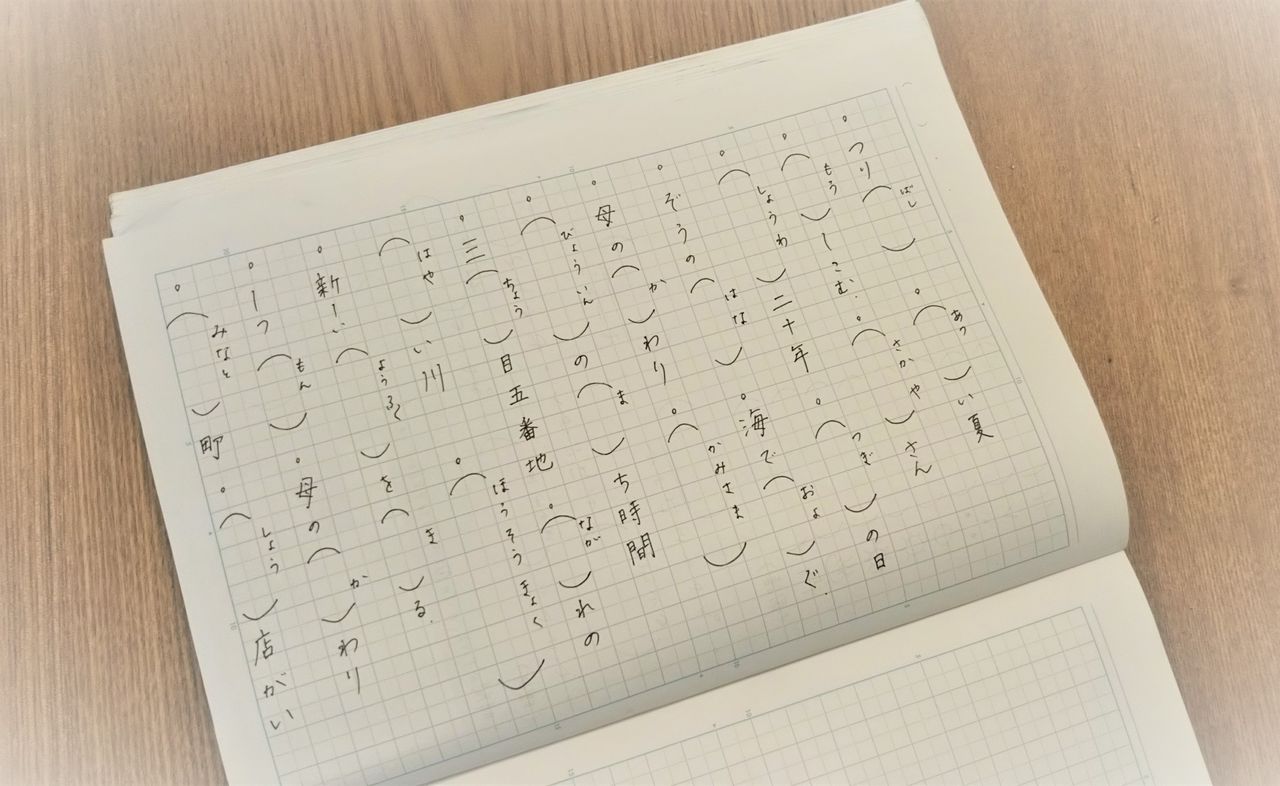 。つり（ばし）　。（あつ）い夏
。（もう）しこむ.　。（さかや）さん
。（しょうわ）二十年　。（つぎ）の日
。ぞうの（はな）　。海で（およ）ぐ.
。母の（か）わり　。（かみさま）
。（びょういん）の（ま）ち時間
。三（ちょう）目五番地　。（なが）れの
（はや）い川　。（ほうそうきょく）
。新しい（ようふく）を（き）る.
。しつ（もん）　。母の（か）わり
。（みなと）町　。（しょう）店がい